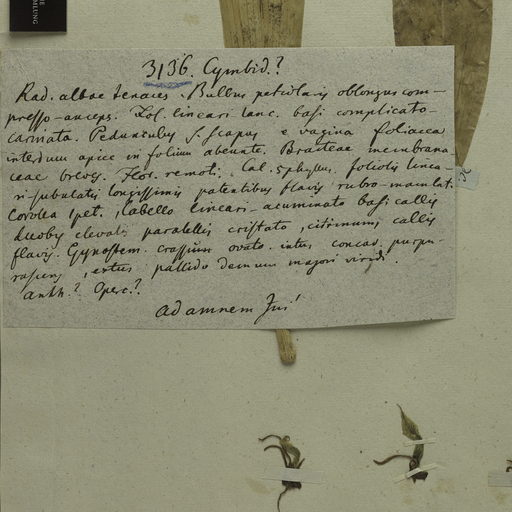 MLUNG
3136. Cymbid.?
Rad. albae tenaces. Bulbus petiolaris oblongus com-
presso-anceps. Fol. lineari lanc. basi complicato-
carinata. Pedunculus s. scapus e vagina foliacea
interdum apice in folium abeunte. Bracteae membrana
ceae breves. Flor. remoti. Cal. 5phyllus. foliolis linea-
ri-subulatis longissimis patentibus flavis rubro-maculat.
Corolla 1pet. labello lineari-acuminato basi callis
duobus elevatis parallelis cristato, citrinum, callis
flavis. Gynostem. crassium ovato. intus concav. purpu-
rascens, extus pallido demum majori viridi.
Anth.? Operc.?
ad amnem Jui